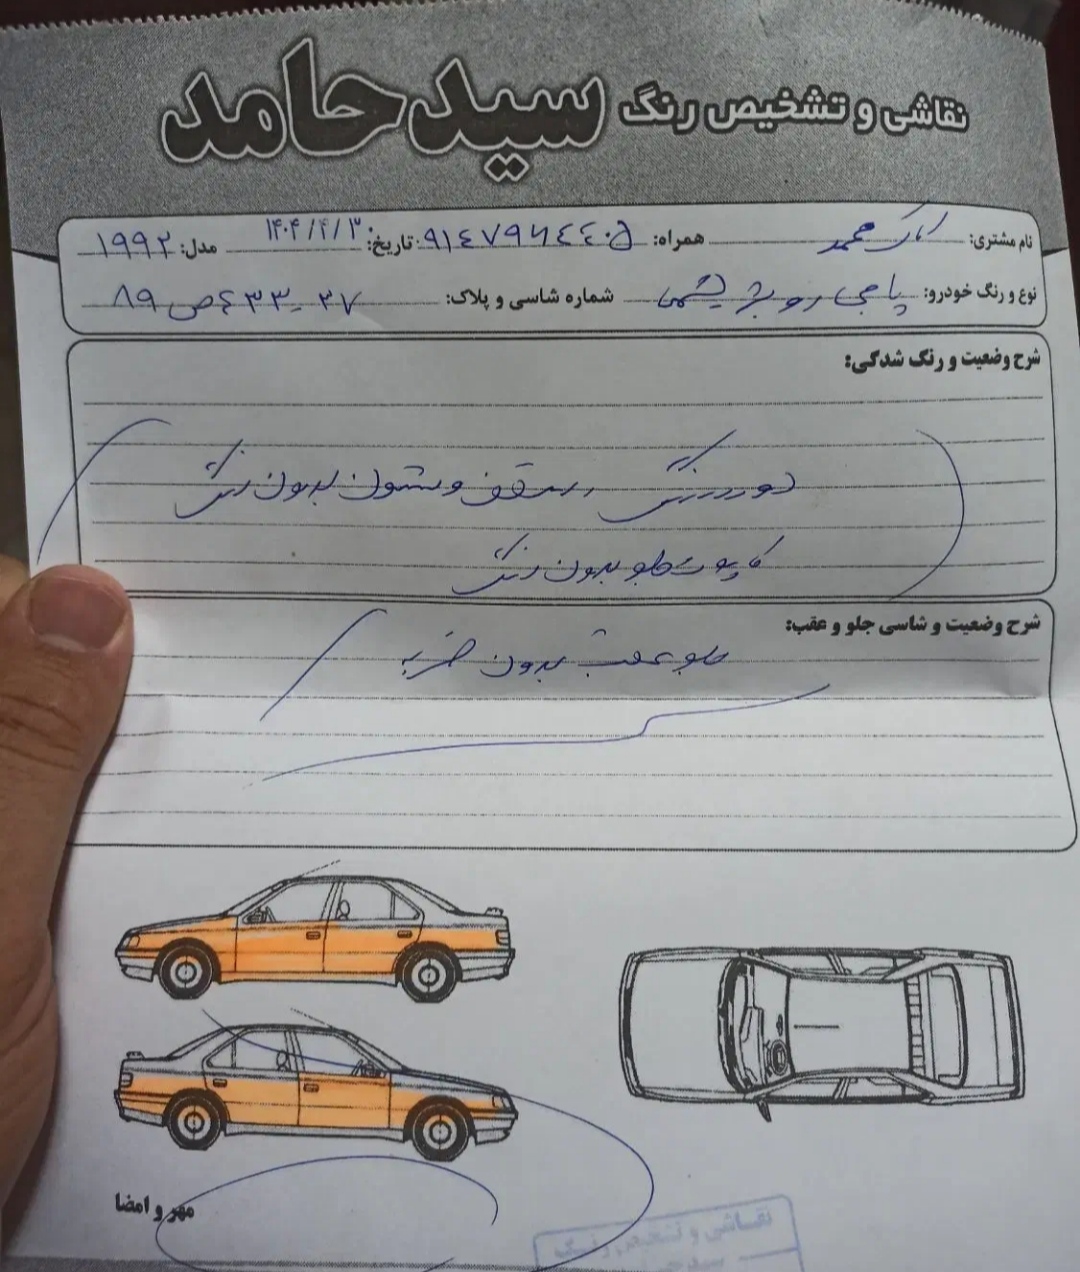 نقاشی و تشخیص رنگ سید حامد
نام مشتری: محمد همراه: ۹۱٤۷۹٦٤٤۰۵ تاریخ: ۱۴۰۴/۴/۳۰ مدل: ۱۹۹۲
نوع و رنگ خودرو: پاجرو شماره شاسی و پلاک: ۳۷ - ۴۳۳ ص ۸۹
شرح وضعیت و رنگ شدگی:
دور رنگ، سقف و ستون بدون رنگ
کاپوت جلو بدون رنگ
شرح وضعیت و شاسی جلو و عقب:
جلو عقب بدون ضربه
مهر و امضا
نقاشی و تشخیص رنگ